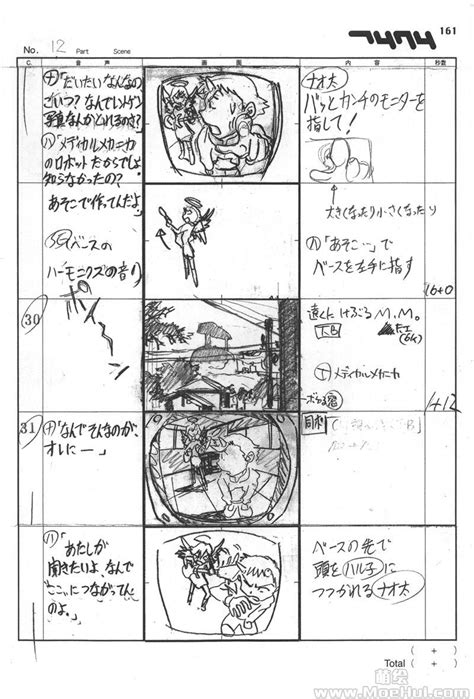 161
フリクリ
No. 12 Part Scene
C. 音声 画面 内容 秒数
ナ「だいたいなんなの
こいつ?なんでレントゲン
写真なんかとれるのさ?
ハ「メディカルメカニカ
のロボットだからでしょ
知らなかったの?
あそこで作ってんだよ」
SE ベースの
ハーモニクスの音
ポーン
ナオ太
パッとカンチのモニターを
指して!
大きくなったり小さくなったり
ハ「あそこ…」で
ベースを左手に指す
16+0
30
遠くに けぶる M.M.
T.B
(6K)
エ メディカルメカニカ
1+12
31
ナ「なんでそんなのが、
オレにー」
同ポ
ハ
「あたしが
聞きたいよ、なんで
"ここ"につながってん
のよ。」
ベースの先で
頭をハル子に
つつかれるナオ太
( + )
Total ( + )
萌绘
www.MoeHui.com